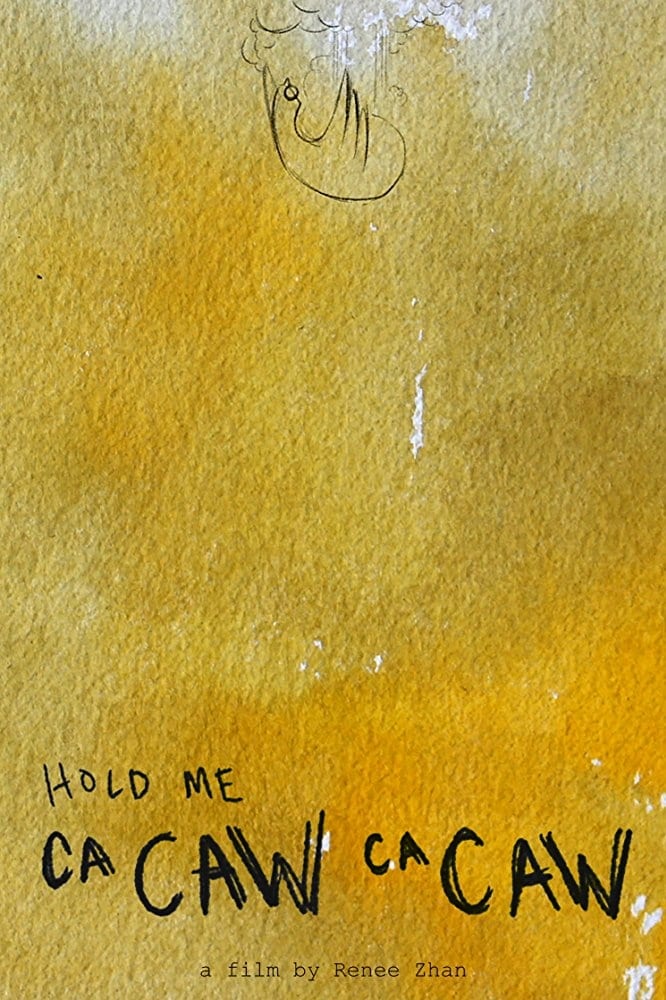 HOLD ME
CA CAW CA CAW
a film by Renee Zhan